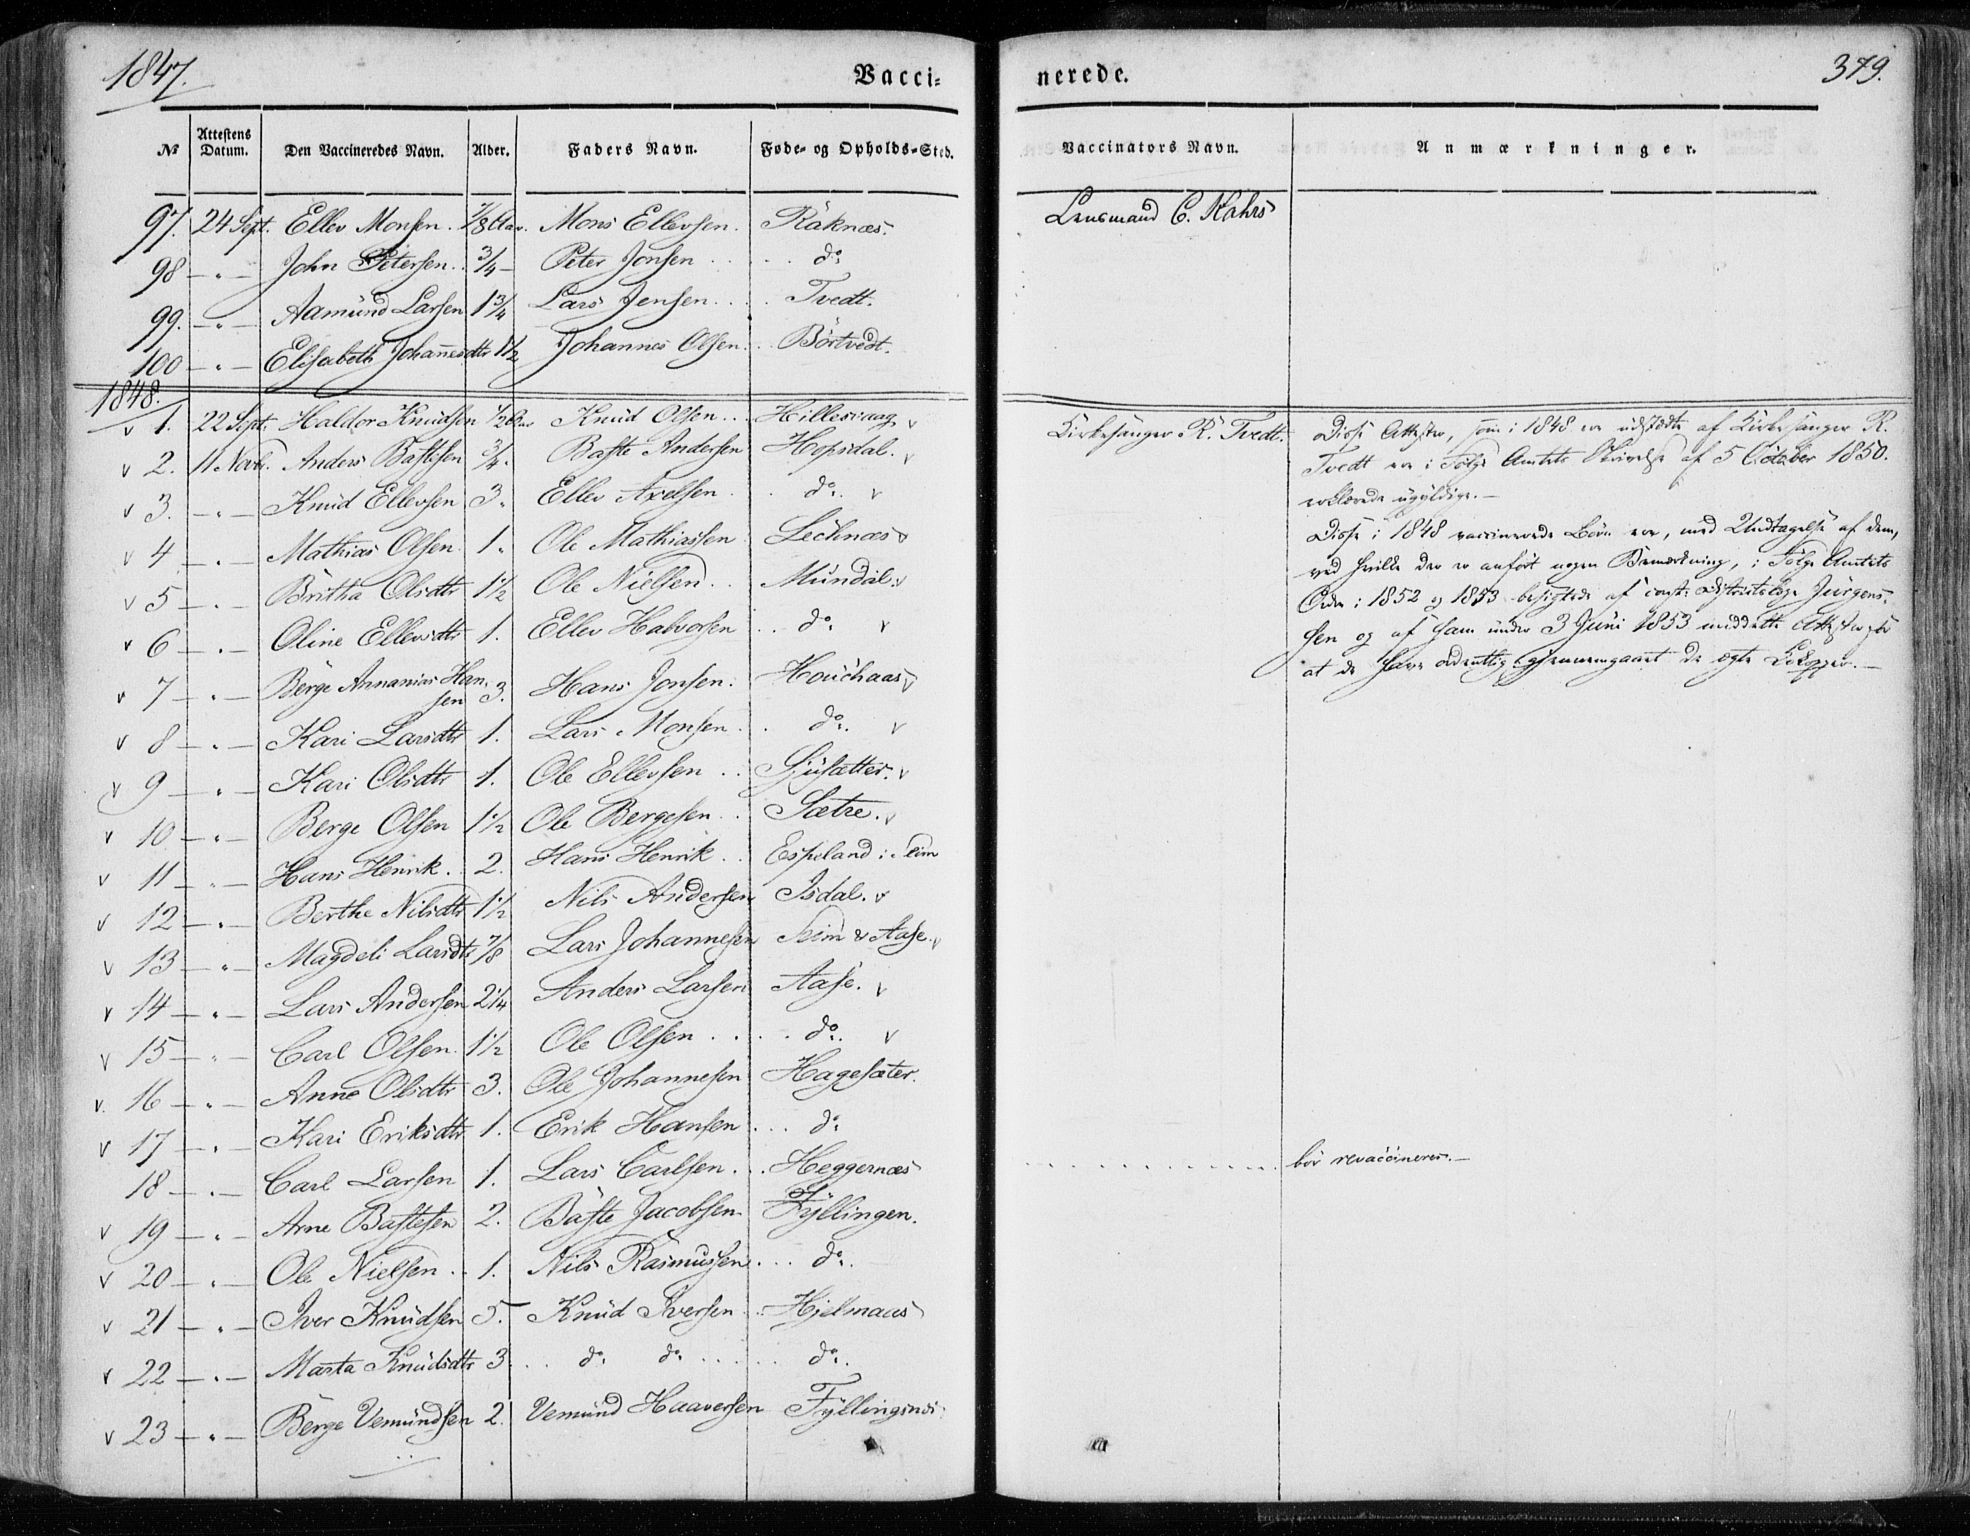 1847. Vacci= nerede. 379.
№ Attestens Datum. Den Vaccineredes Navn. Alder. Faders Navn. Føde- og Opholds-Sted. Vaccinators Navn. Anmærkninger.
97. 24 Sept. Ellev Monsen. 7/8 Aar. Mons Ellevsen. Räknæs. Lensmand C. Kahrs
98 - " - John Petersen. 3/4 - Peter Jonsen . . . . do
99. - " - Aamund Larsen 1 3/4 Lars Jensen . . . . Tvedt.
100 - " - Elisabeth Johannesdtr 1 1/2 Johannes Olsen . . Börtvedt.
1848.
v 1. 22 Sept. Haldor Knudsen 1/2 Knud Olsen . . . Hillesvaag v Kirkesanger R. Tvedt. Disse Attester, som i 1848 ere udstædte af Kirkesanger R.
v 2. 11 Novbr. Anders Bastesen 3/4. Baste Andersen Hopsdal. v Tvedt ere i Følge Amtets Skrivelse af 5 October 1850.
v 3. - " - Knud Ellevsen 3. Ellev Axelsen . . do. v erklærede ugyldige. -
v 4 - " - Mathias Olsen 1. Ole Mathiassen Lechnæs v Disse i 1848 vaccinerede Børn ere, med Undtagelse af dem,
v 5 - " - Britha Olsdtr 1 1/2 Ole Nielsen . . Mundal. v ved hvilke der er anført nogen Bemærkning, i Følge Amtets
v 6 - " - Oline Ellevsdtr 1. Ellev Halvorsen . . do. v Ordre i 1852 og 1853 besigtede af const. Districtslæge Jürgens-
sen og af ham under 3 Juni 1853 meddeelte Attester for
v 7 - " - Berge Annanias Han- 3. Hans Jonsen. Houchaas v at de have ordentlig gjennemgaaet de ægte Kokopper. -
sen
v 8 - " - Kari Larsdtr 1. Lars Monsen . . do. v
v 9 - " - Kari Olsdtr 1. Ole Ellevsen . . Sjusætter. v
v 10 - " - Berge Olsen 1 1/2 Ole Bergesen . . Sætre. v
v 11 - " - Hans Henrik . 2. Hans Henrik . . Espeland i Seim
v 12 - " - Berthe Nilsdtr 1 1/2 Nils Andersen Isdal. v
v 13 - " - Magdeli Larsdtr 7/8 Lars Johannesen Seim & Aase. v
v 14 - " - Lars Andersen 2 1/4 Anders Larsen Aase. v
v 15 - " - Carl Olsen. 1 1/2 Ole Olsen . . . . do. v
v. 16 - " - Anne Olsdtr 3. Ole Johannesen Hagesæter.
v 17 - " - Kari Eriksdtr 1. Erik Hansen . . . do
18 - " - Carl Larsen 1. Lars Carlsen . . . Heggernæs . . . . . . . . . . bör revaccineres. -
v 19 - " - Arne Bastesen 2. Baste Jacobsen Fyllingen.
v 20 - " - Ole Nielsen . . 1. Nils Rasmussen . . . do.
v 21 - " - Iver Knudsen 5. Knud Iversen . . Hjelmaas
v 22 - " - Marta Knudsdtr 3. . . do. do. . . . . . do.
v 23 - " - Berge Vemundsen 2. Vemund Haaversen Fyllingsnæs